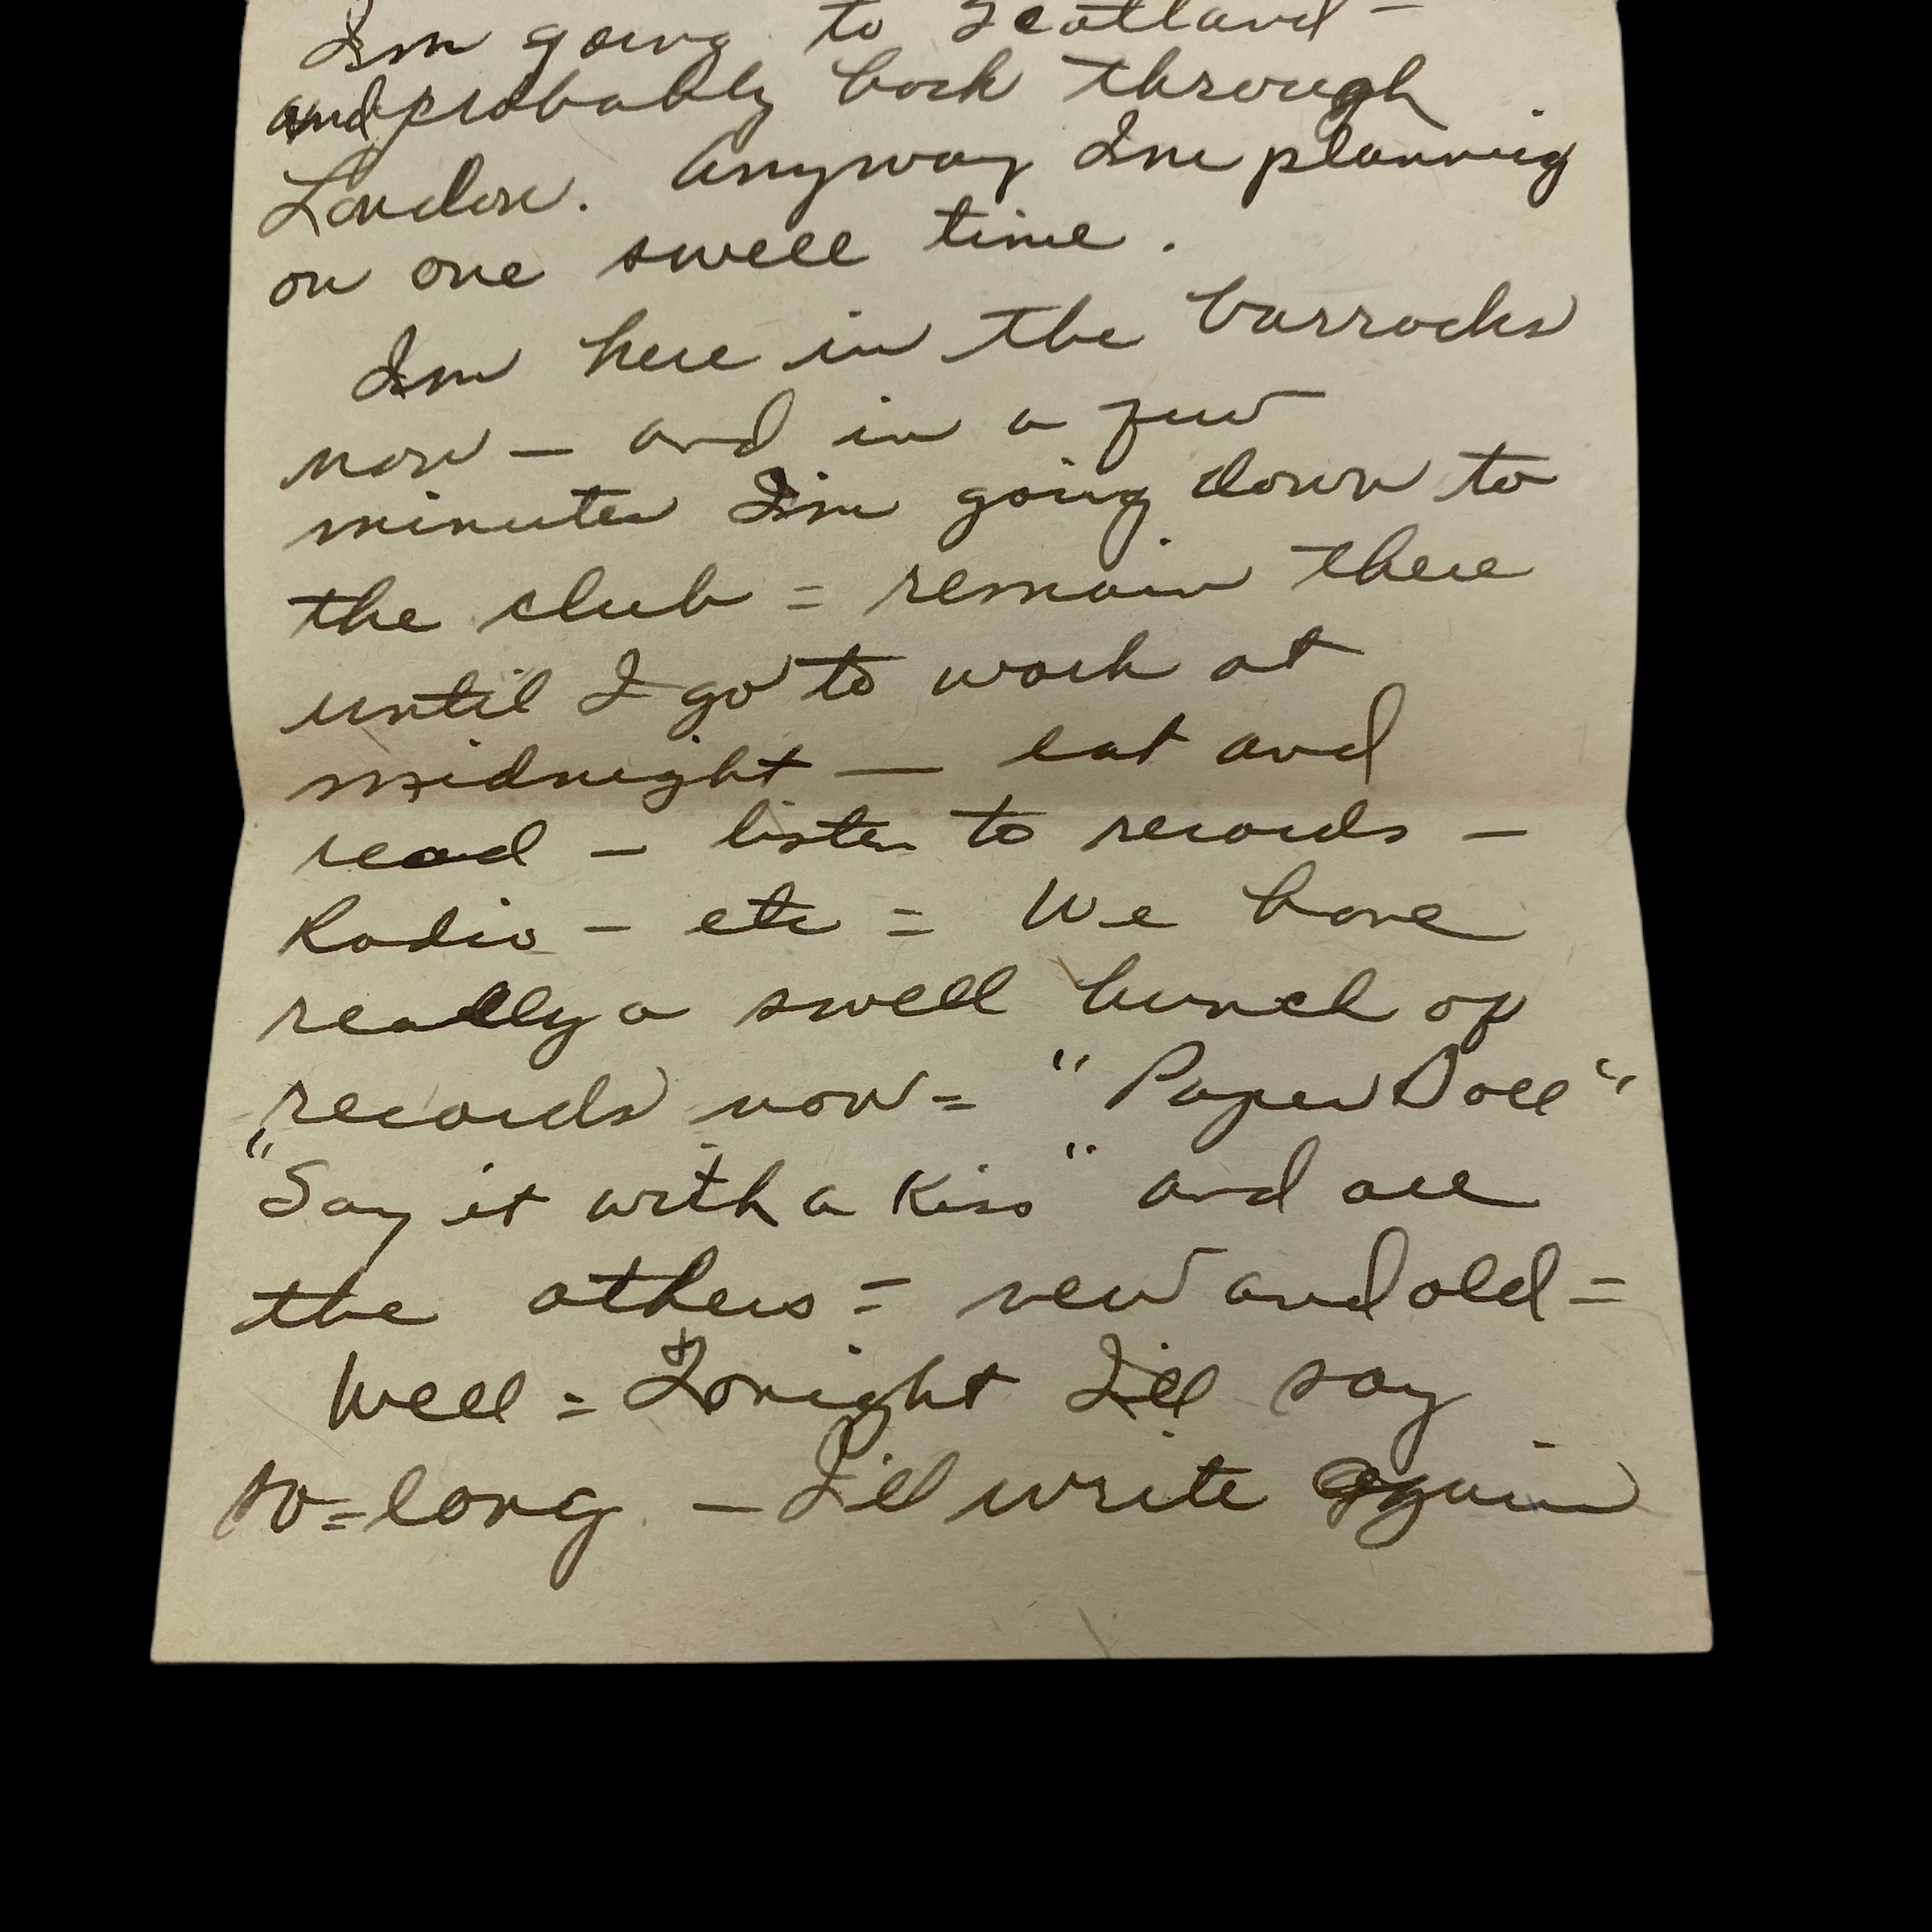 Im going to Scotland -
and probably back through
London. Anyway Im planning
on one swell time.
Im here in the barracks
now — and in a few
minutes I'm going down to
the club = remain there
until I go to work at
midnight — eat and
read — listen to records —
Radio - etc = We have
really a swell bunch of
records now = "Paper Doll"
"Say it with a Kiss" and all
the others = new and old =
Well = Tonight I'll say
so=long — I'll write again